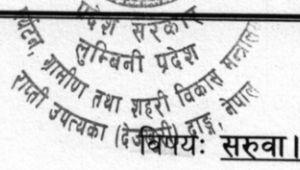 प्रदेश सरकार
लुम्बिनी प्रदेश
ग्रामीण तथा शहरी विकास मन्त्रालय
राप्ती उपत्यका (देउखुरी) दाङ्ग, नेपाल
विषयः सरुवा।